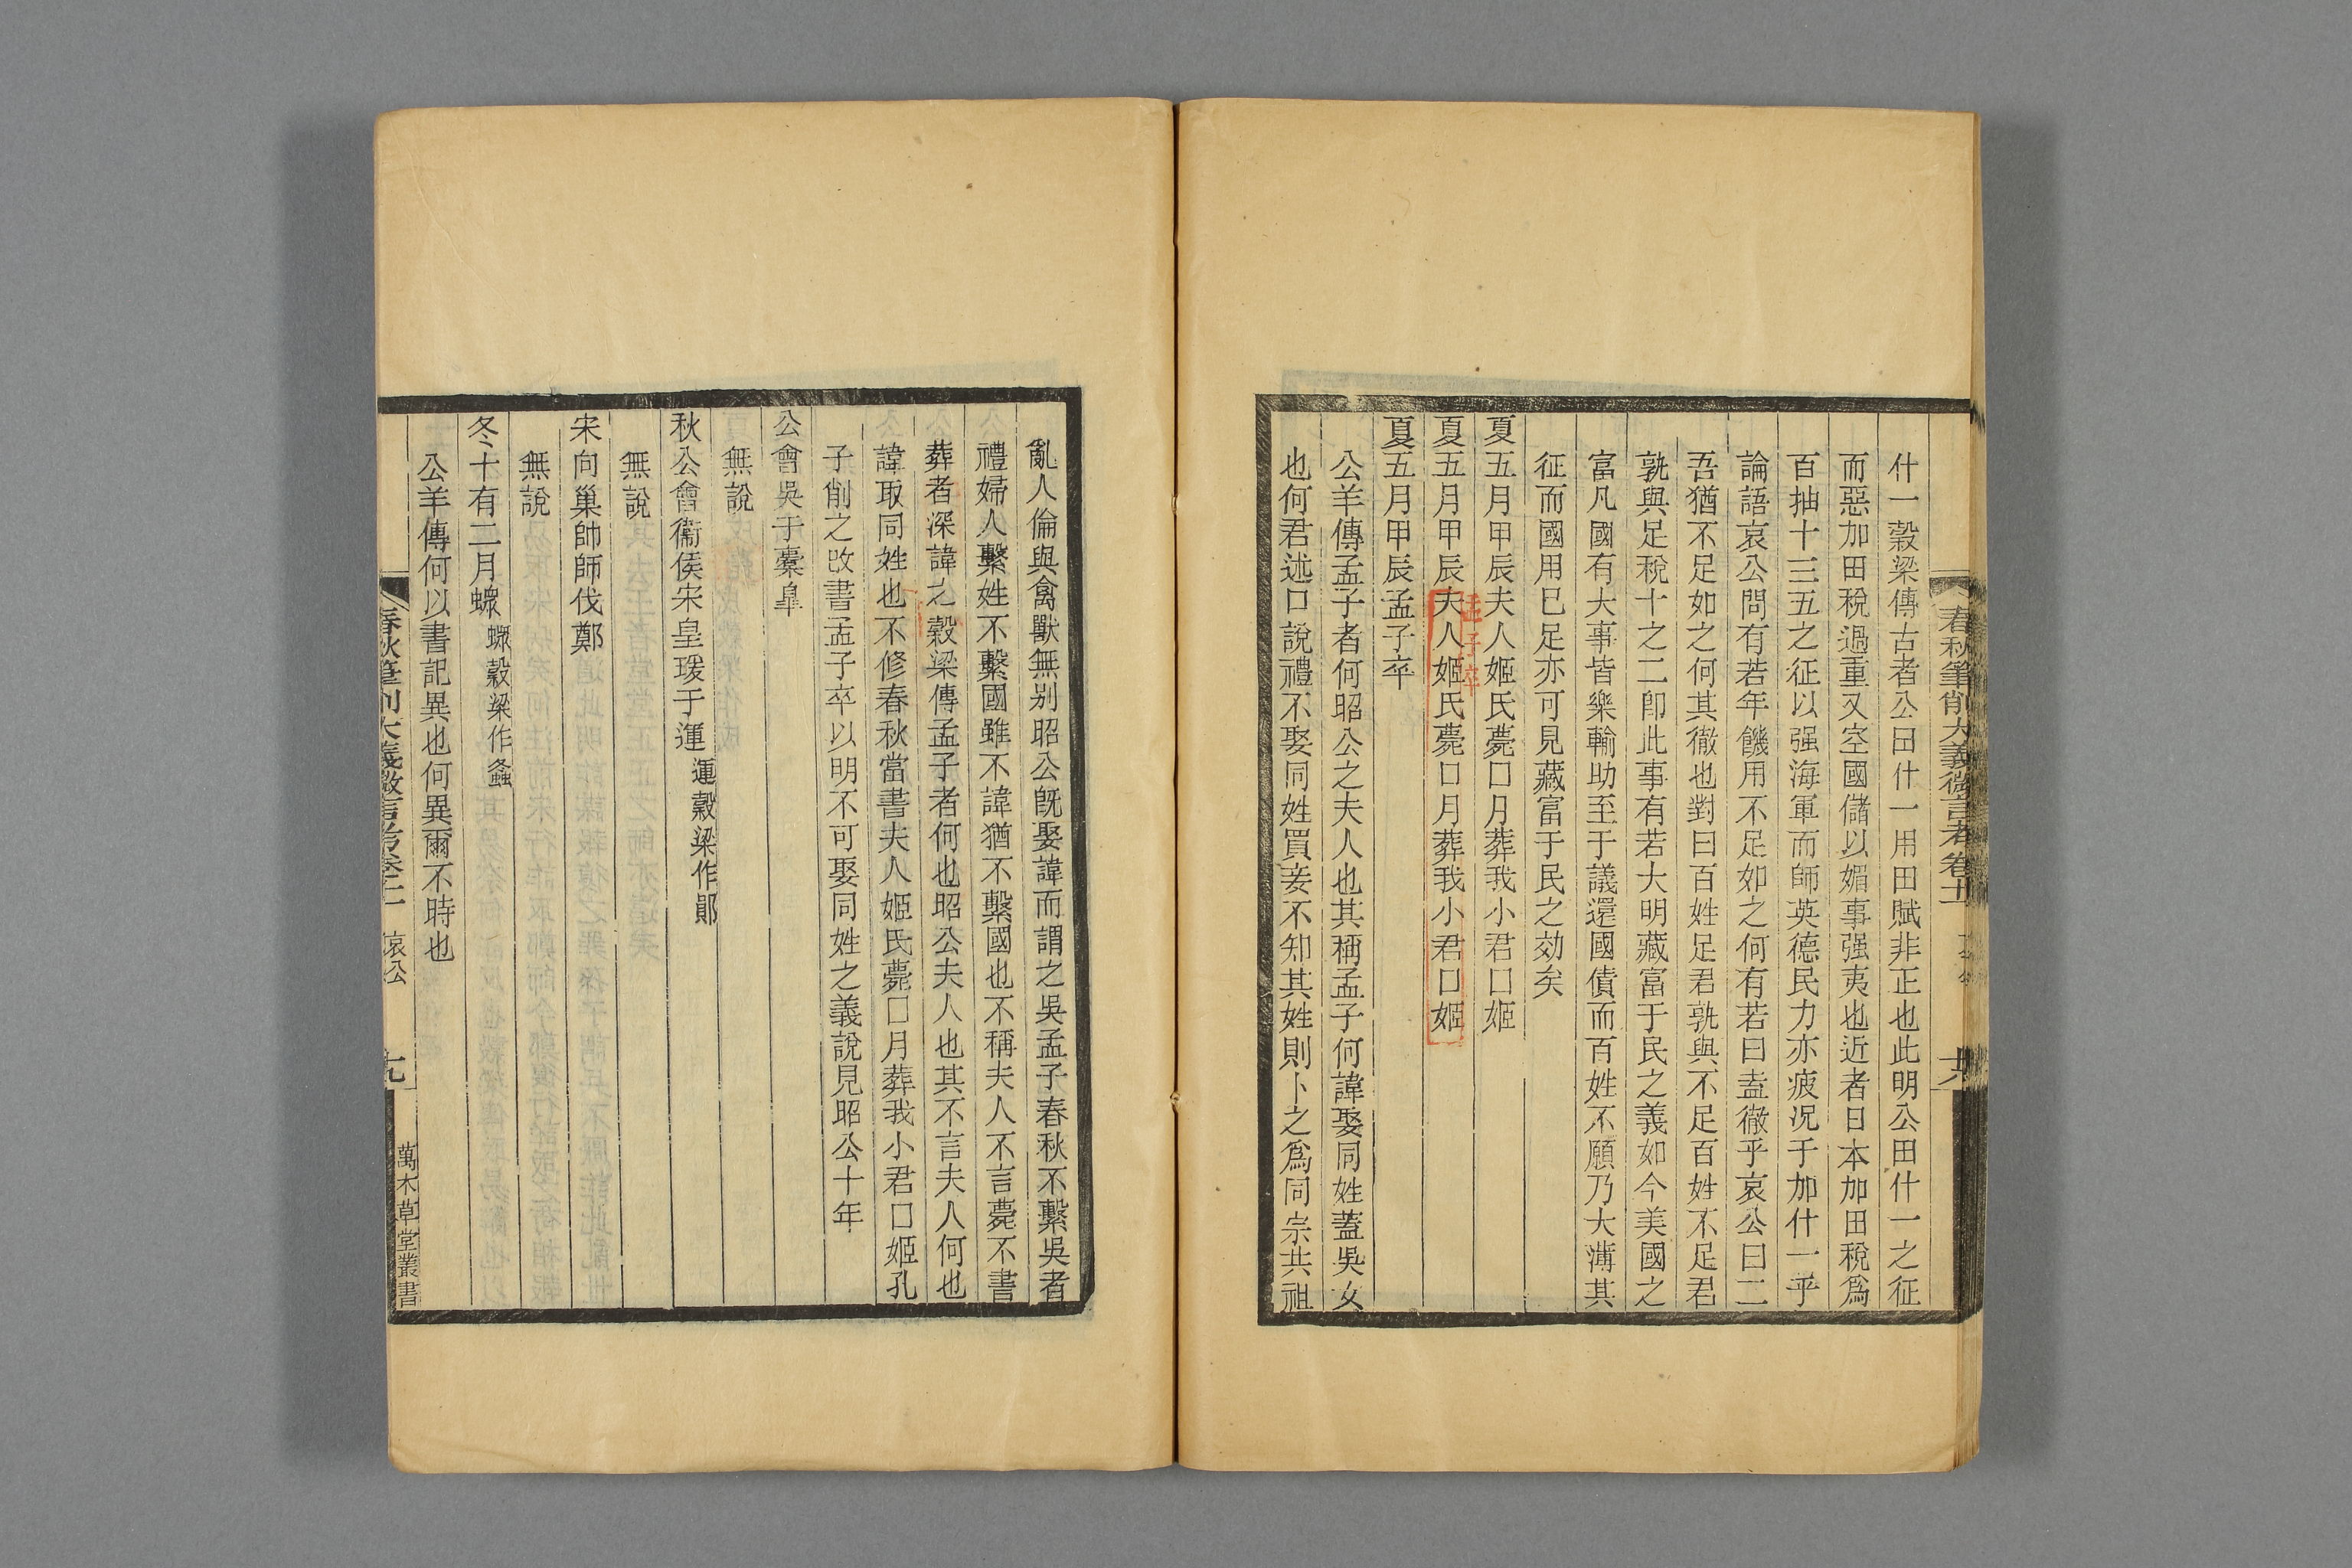 春秋筆削大義微言考卷十一
什一穀梁傳古者公田什一用田賦非正也此明公田什一之征
而惡加田稅過重又空國儲以媚事强夷也近者日本加田稅爲
百抽十三五之征以强海軍而師英德民力亦疲況于加什一乎
論語哀公問有若年饑用不足如之何有若曰盍徹乎哀公曰二
吾猶不足如之何其徹也對曰百姓足君孰與不足百姓不足君
孰與足稅十之二卽此事有若大明藏富于民之義如今美國之
富凡國有大事皆樂輸助至于議還國債而百姓不願乃大薄其
征而國用已足亦可見藏富于民之効矣
夏五月甲辰夫人姬氏薨口月葬我小君口姬
孟子卒
夏五月甲辰夫人姬氏薨口月葬我小君口姬
夏五月甲辰孟子卒
公羊傳孟子者何昭公之夫人也其稱孟子何諱娶同姓蓋吳女
也何君述口說禮不娶同姓買妾不知其姓則卜之爲同宗共祖
亂人倫與禽獸無别昭公旣娶諱而謂之吳孟子春秋不繫吳者
禮婦人繫姓不繫國雖不諱猶不繫國也不稱夫人不言薨不書
葬者深諱之穀梁傳孟子者何也昭公夫人也其不言夫人何也
諱取同姓也不修春秋當書夫人姬氏薨口月葬我小君口姬孔
子削之改書孟子卒以明不可娶同姓之義說見昭公十年
公會吳于橐皐
無說
秋公會衞侯宋皇瑗于運運穀梁作鄖
無說
宋向巢帥師伐鄭
無說
冬十有二月螽螽穀梁作螽
公羊傳何以書記異也何異爾不時也
春秋筆削大義微言考卷十一 哀公
萬木草堂叢書